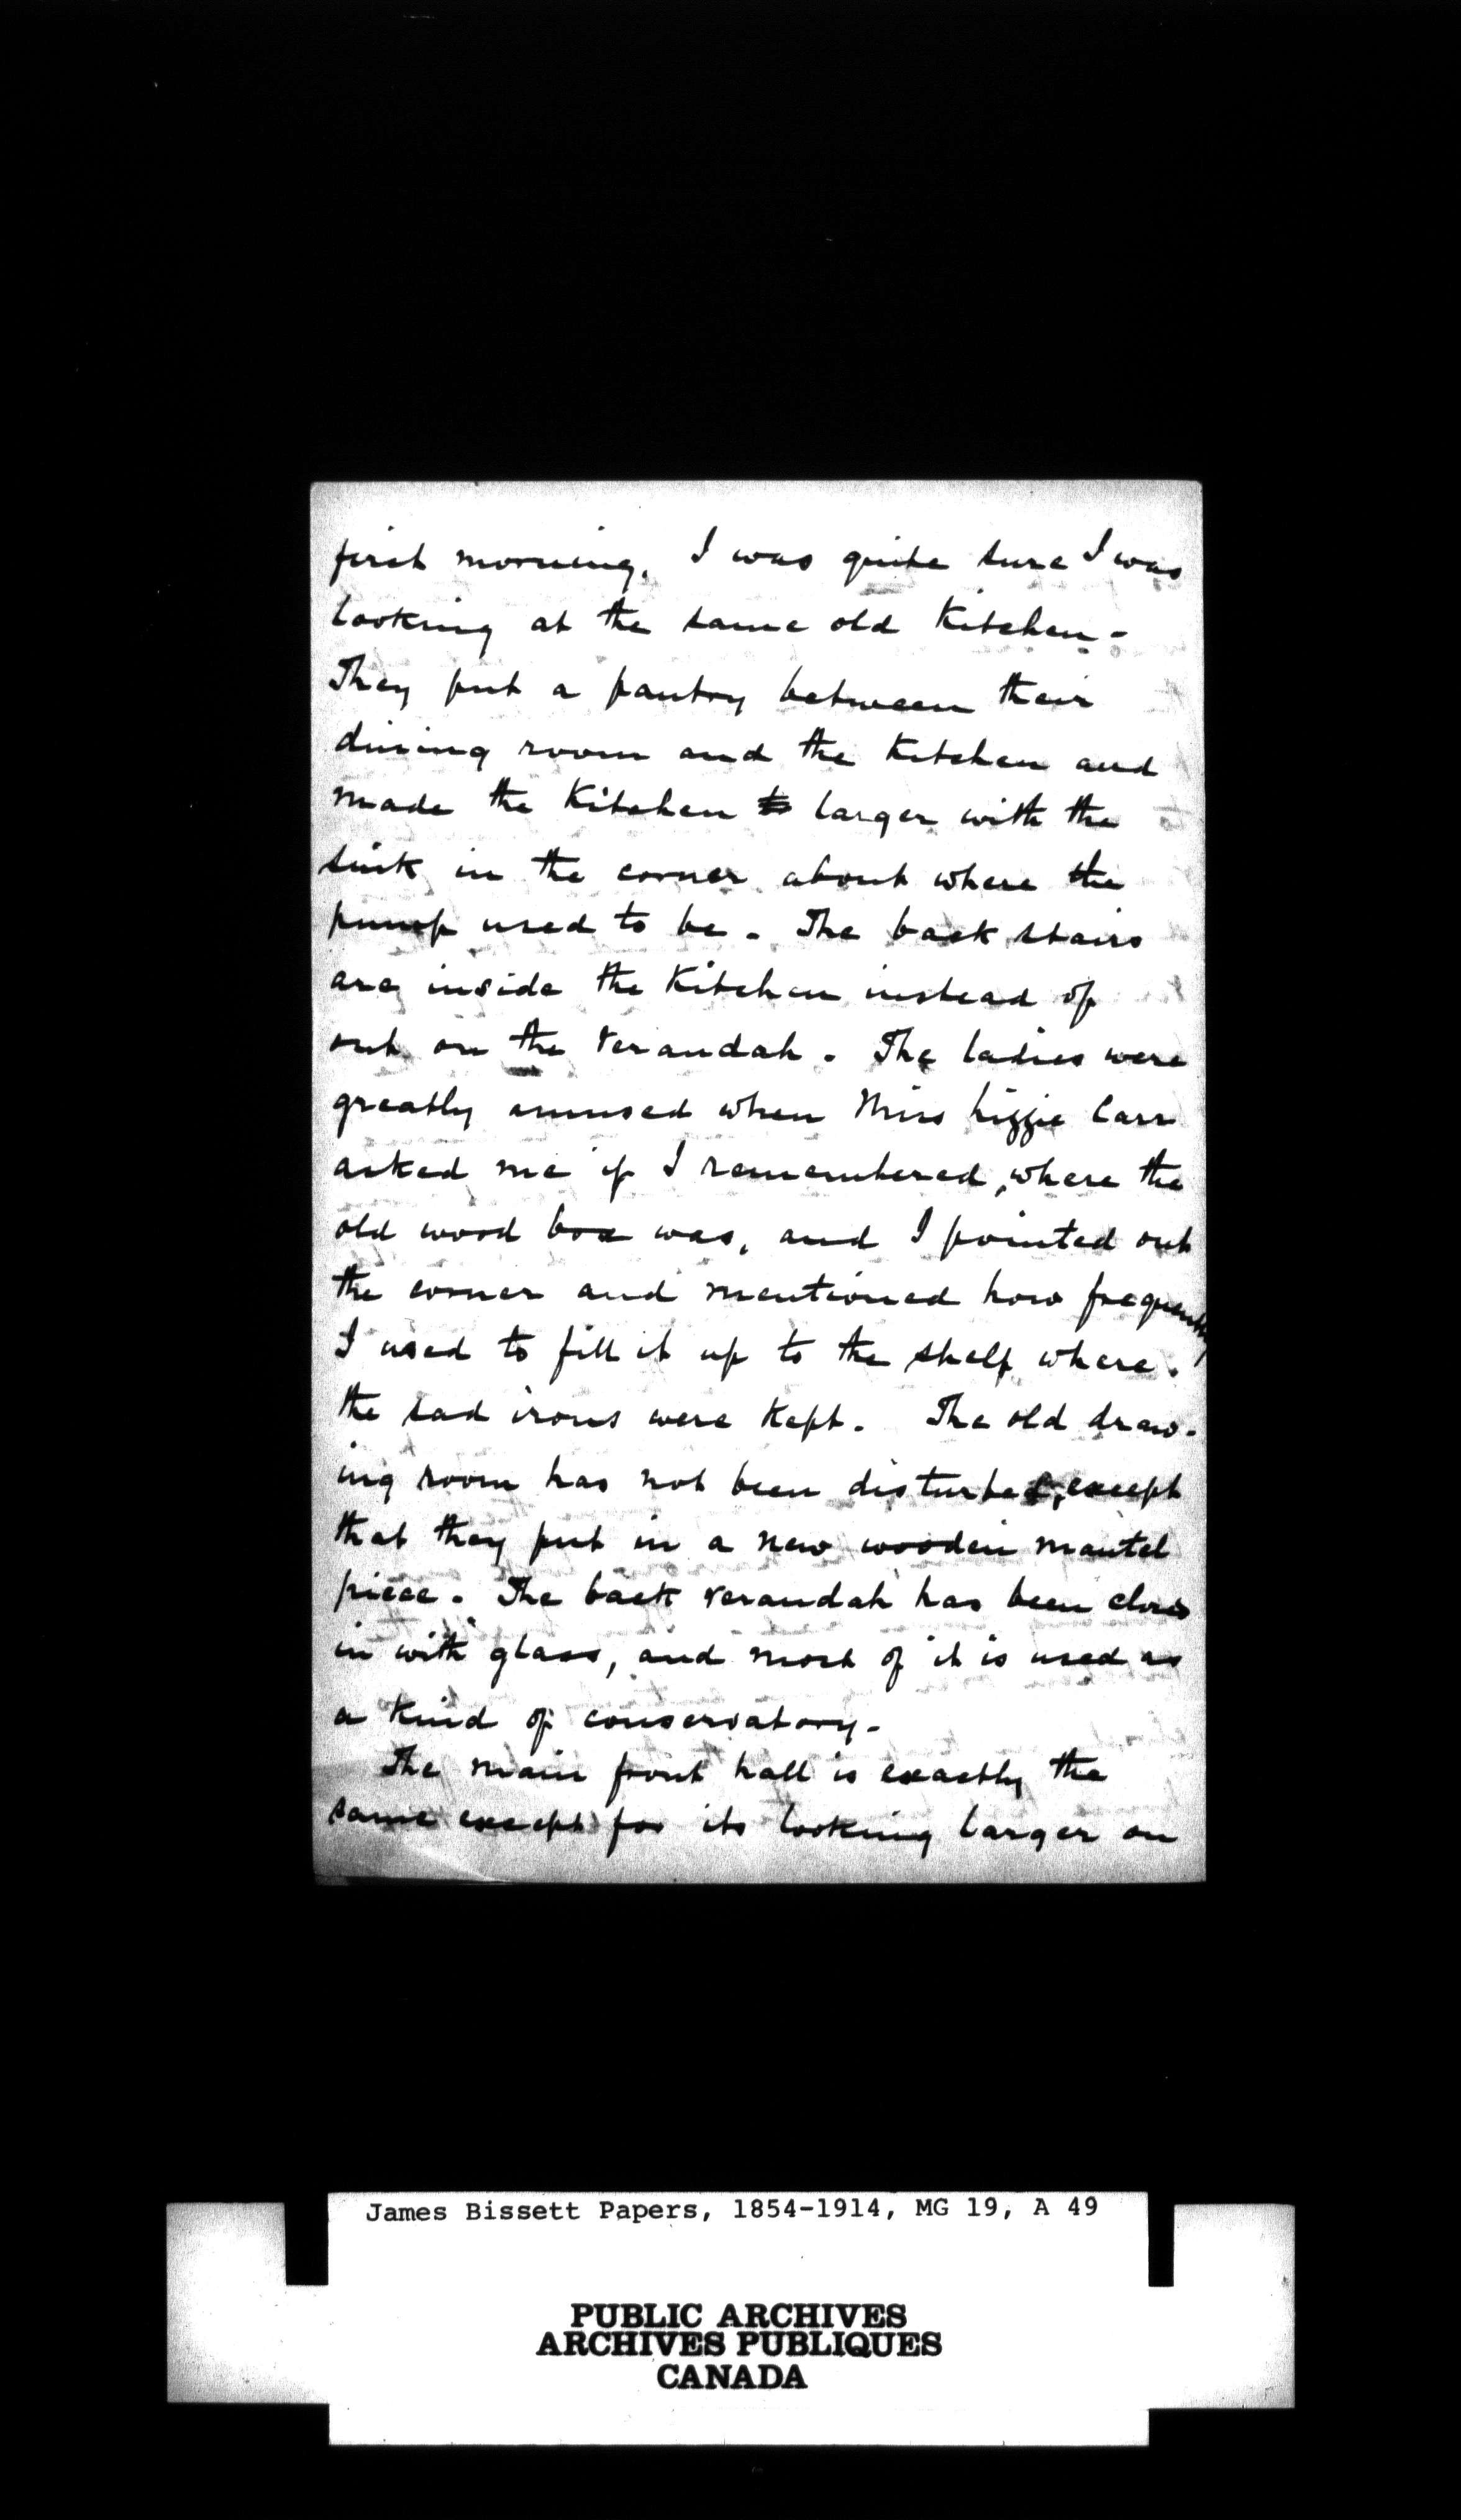 first morning. I was quite sure I was
looking at the same old Kitchen -
They put a pantry between their
dining room and the Kitchen and
made the Kitchen to larger with the
sink in the corner about where the
pump used to be. The back stairs
are inside the Kitchen instead of
out on the verandah. The ladies were
greatly amused when Miss Lizzie Carr
asked me if I remembered, where the
old wood box was, and I pointed out
the corner and mentioned how frequently
I used to fill it up to the shelf where.
the sad irons were Kept. The old draw-
ing room has not been disturbed, except
that they put in a new wooden mantel
piece. The back verandah has been closed
in with glass, and most of it is used as
a Kind of conservatory -
The main front hall is exactly the
same except for its looking larger on
James Bissett Papers, 1854-1914, MG 19, A 49
PUBLIC ARCHIVES
ARCHIVES PUBLIQUES
CANADA